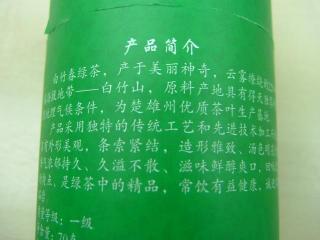 产品简介
白竹春绿茶，产于美丽神奇，云雾缭绕的
高海拔地带——白竹山，原料产地具有得天独
地理气候条件，为楚雄州优质茶叶生产基地
产品采用独特的传统工艺和先进技术加工
有外形美观，条索紧结，造形雅致、汤色明
气浓郁持久、久溢不散、滋味鲜醇爽口，回味
特点、是绿茶中的精品，常饮有益健康，诚
质量等级：一级
含量：70克